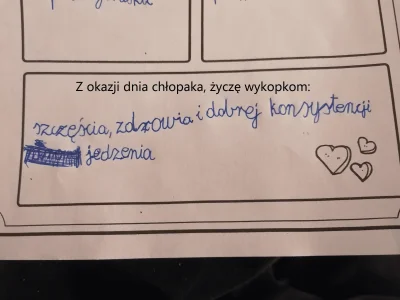 Z okazji dnia chłopaka, życzę wykopkom:
szczęścia, zdrowia i dobrej konsystencji
jedzenia